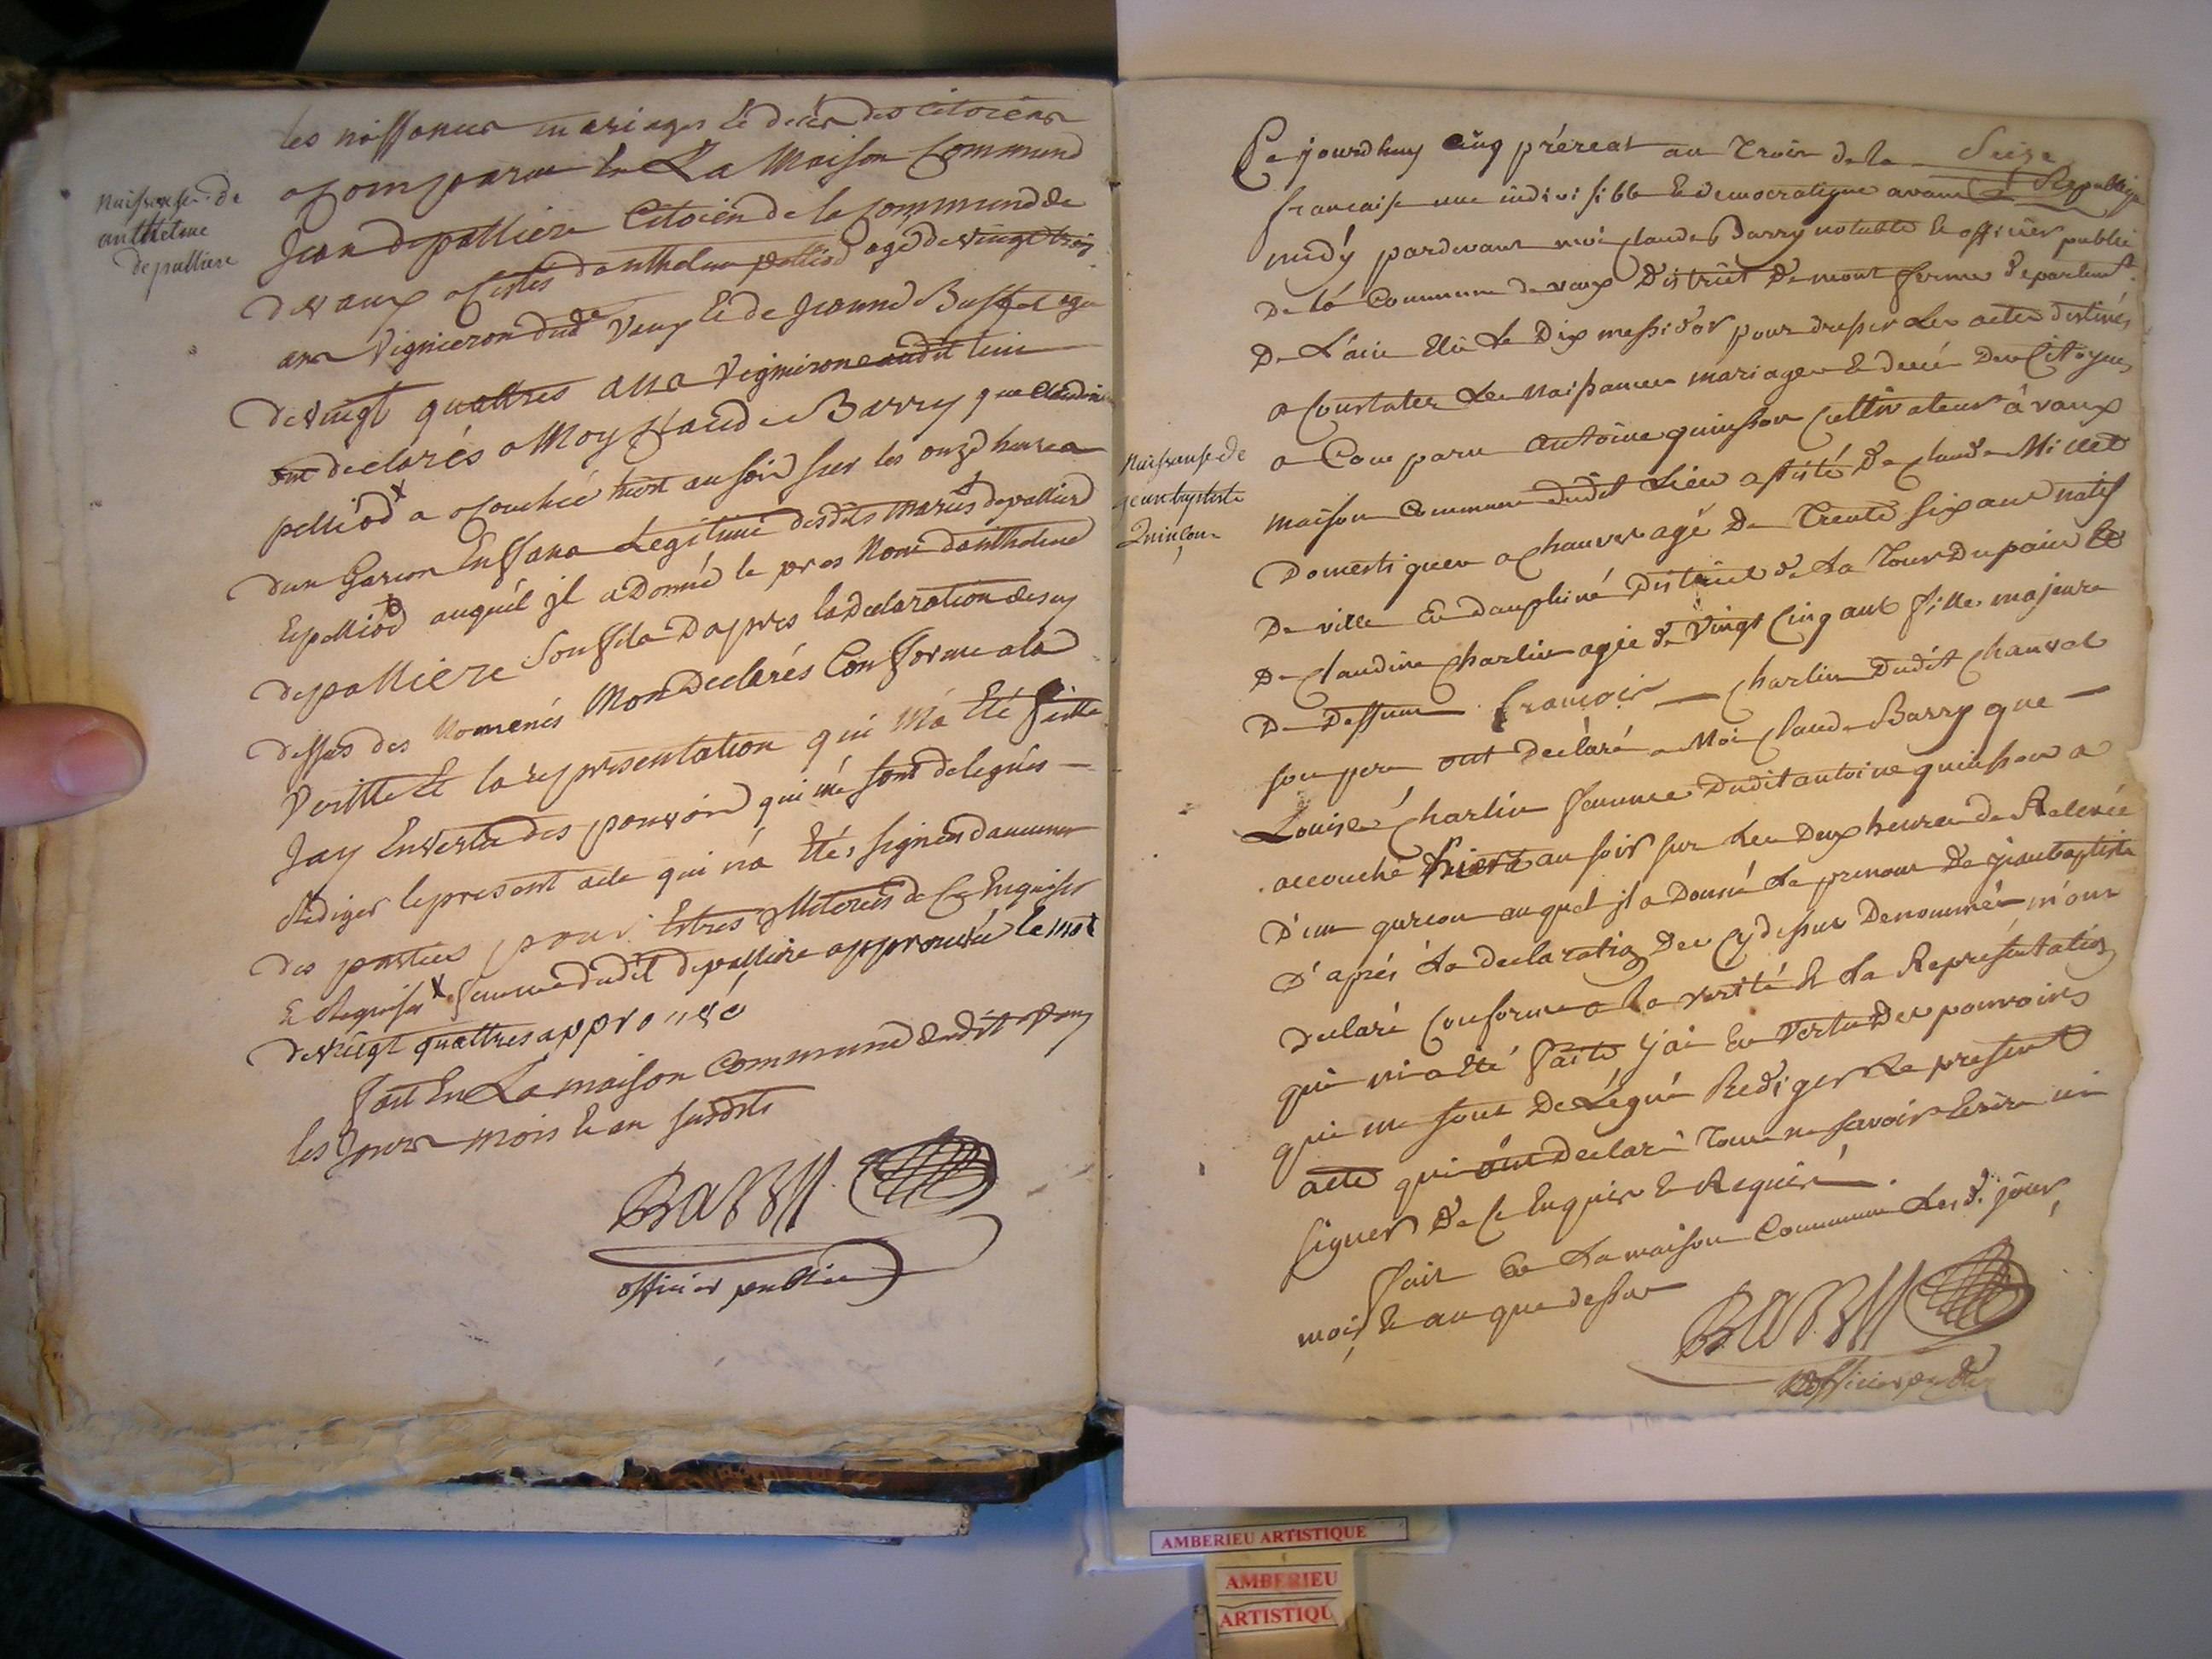 les naissances mariages & decès des citoiens
a comparu en La Maison Commune
Naissance de
anthelme
depalliere
Jean depalliere Citoien de la commune de
de vaux assistés danthelme pelliod agé de vingt trois
ans Vignieron dud Vaux & de Jeanne Buffet agé
de vingt quattres ans Vignirone audit lieu
ont declarés a Moy Claude Barry que Claudine
pelliod x a acouchée hiert au soir sur les onze heures
dun Garcon Enffans Legitime desdits mariés depalliere
Et pelliod auquél jl a Donné le pres Nom danthelme
depalliere son fils D'apres la declaration desuy
dessus des Nomenés Mon Declarés Conforme a la
Veritté Et la representation qui Má Eté faitte
Jay En vertu des pouvoir qui mé sont delegués
Rédiger le present acte qui n'a Eté signés d'aucunes
des parties pour Estres Illiterées de Ce Enquises
& Requises x femme dudit depalliere approuvée le mot
de vingt quattres approuvé
fait En La maison Commune dudit Vaux
les Jours mois & an susdits
Barry
officier public
Ce jourd'huy cinq préreal an Trois de la Seize Republique
francaise une indivisible & democratique avant
midy pardevant moi Claude Barry notable & officier public
De la Commune de vaux District De mont ferme Departement
De L'ain Elû Le Dix messidor pour dresser Les actes destinés
a Constater Les Naissances mariages & decés Des Citoyens
a Comparu Antoine quinsson Cultivateur à vaux
Naissanse de
jean baptiste
Quinson
maison Commune dudit Lieu assisté De Claude Millet
Domestiques a Chauves agé De Trente six ans natif
De ville En dauphiné District de La Tour Du pain &
De Claudine Charlin agée de Vingt Cinq ans fille majeure
De Deffunt francois Charlin Dudit Chauves
son pere ont Declaré a Moi Claude Barry que
Louise Charlin femme Dudit antoine quinsson a
accouché hiert au soir sur Les Deux heures de Relevée
D'un garcon auquel jl a Donné Le prenom De jean baptiste
D'aprés La declaration Des Cy dessus Denommés m'ont
declaré Conforme a La verité & La Représentation
qui m'a été faite j'ai En Vertu Des pouvoirs
qui me sont De Légué Rediger Le present
acte qui ont Declaré Tous ne savoir Ecrire ni
signer De Ce Enquis & Requis
fait En La maison Commune Lesd. jour
mois & an que dessus
Barry
officier public
AMBERIEU ARTISTIQUE
AMBERIEU
ARTISTIQU